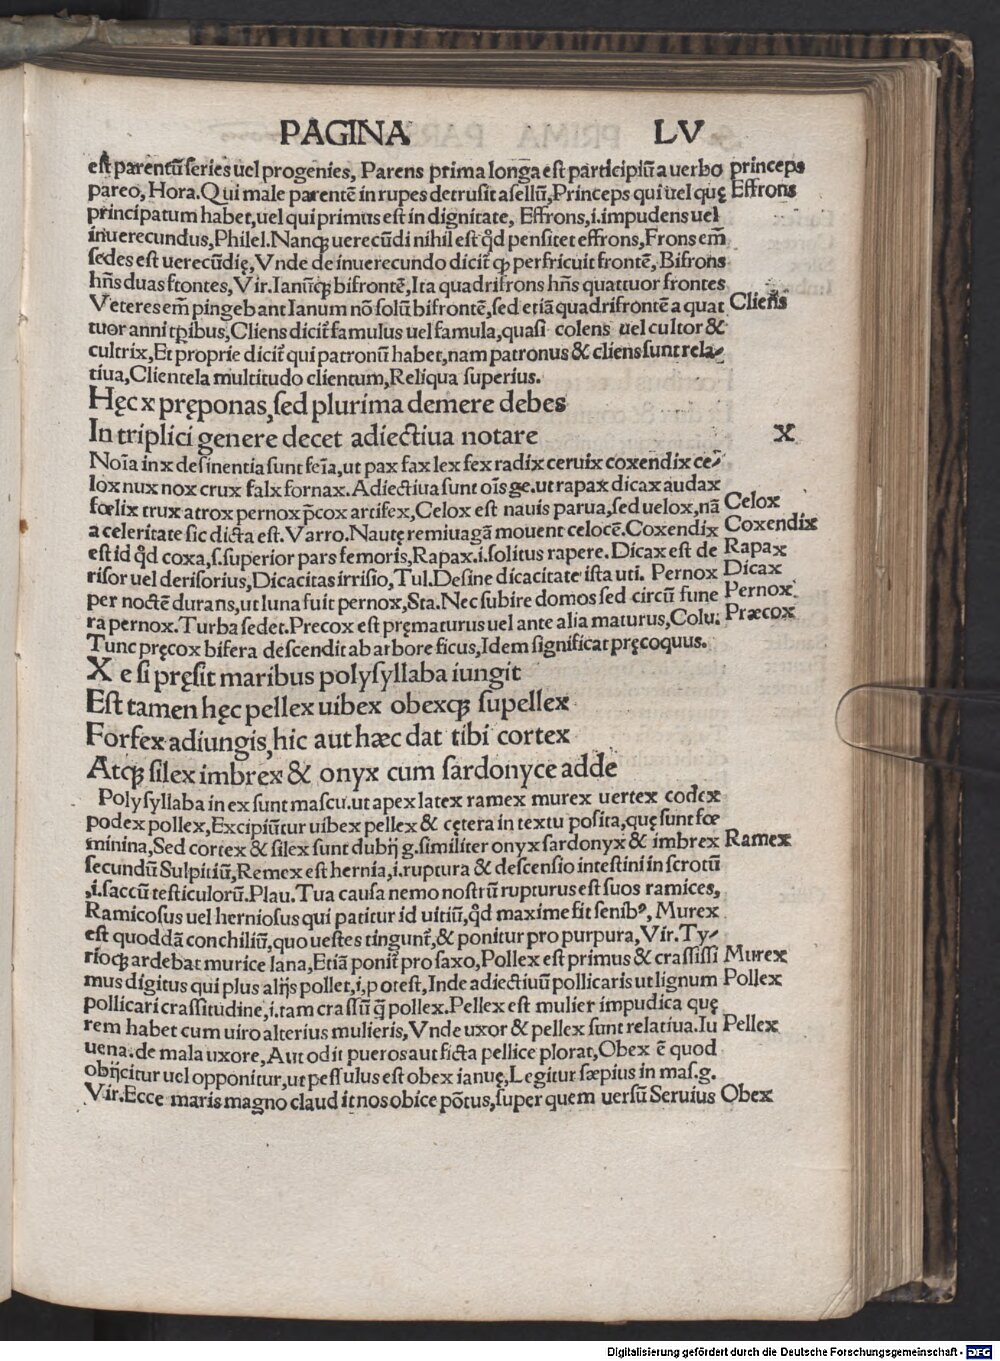 PAGINA LV
est parentũ series uel progenies, Parens prima longa est participiũ a uerbo princeps
pareo, Hora. Qui male parentẽ in rupes detrusit asellũ, Princeps qui uel quę Effrons
principatum habet, uel qui primus est in dignitate, Effrons, .i. impudens uel
inuerecundus, Philel. Nanq; uerecũdi nihil est qd̃ pensitet effrons, Frons em̃
sedes est uerecũdię, Vnde de inuerecundo dicit̃ ꝙ perfricuit frontẽ, Bifrons
hñs duas frontes, Vir. Ianũq; bifrontẽ, Ita quadrifrons hñs quattuor frontes
Veteres em̃ pingebant Ianum nõ solũ bifrontẽ, sed etiã quadrifrontẽ a quat Cliens
tuor anni tp̃ibus, Cliens dicit̃ famulus uel famula, quasi colens uel cultor &
cultrix, Et proprie dicit̃ qui patronũ habet, nam patronus & cliens sunt rela-
tiua, Clientela multitudo clientum, Reliqua superius.
Hęc x pręponas, sed plurima demere debes
In triplici genere decet adiectiua notare X
Noĩa in x desinentia sunt feĩa, ut pax fax lex fex radix ceruix coxendix ce-
lox nux nox crux falx fornax. Adiectiua sunt oĩs ge. ut rapax dicax audax
fœlix trux atrox pernox p̃cox artifex, Celox est nauis parua, sed uelox, nã Celox
a celeritate sic dicta est. Varro. Nautę remiuagã mouent celocẽ. Coxendix Coxendix
est id qd̃ coxa, .s. superior pars femoris, Rapax .i. solitus rapere. Dicax est de Rapax
risor uel derisorius, Dicacitas irrisio, Tul. Desine dicacitate ista uti. Pernox Dicax
per noctẽ durans, ut luna fuit pernox, Sta. Nec subire domos sed circũ fune Pernox
ra pernox. Turba sedet. Precox est pręmaturus uel ante alia maturus, Colu. Præcox
Tunc pręcox bifera descendit ab arbore ficus, Idem significat pręcoquus.
X e si pręsit maribus polysyllaba iungit
Est tamen hęc pellex uibex obexq; supellex
Forfex adiungis, hic aut hæc dat tibi cortex
Atq; silex imbrex & onyx cum sardonyce adde
Polysyllaba in ex sunt mascu. ut apex latex ramex murex uertex codex
podex pollex, Excipiũtur uibex pellex & cętera in textu posita, quę sunt fœ
minina, Sed cortex & silex sunt dubij g. similiter onyx sardonyx & imbrex Ramex
secundũ Sulpitiũ, Remex est hernia, .i. ruptura & descensio intestini in scrotũ
,i. saccũ testiculorũ. Plau. Tua causa nemo nostrũ rupturus est suos ramices,
Ramicosus uel herniosus qui patitur id uitiũ, qd̃ maxime fit senibꝰ, Murex
est quoddã conchiliũ, quo uestes tingunt̃, & ponitur pro purpura, Vir. Ty-
rioq; ardebat murice lana, Etiã ponit̃ pro saxo, Pollex est primus & crassissi Murex
mus digitus qui plus alijs pollet, i, potest, Inde adiectiuũ pollicaris ut lignum Pollex
pollicari crassitudine, .i. tam crassũ q̃ pollex. Pellex est mulier impudica quę
rem habet cum uiro alterius mulieris, Vnde uxor & pellex sunt relatiua. Iu Pellex
uena. de mala uxore, Aut odit pueros aut ficta pellice plorat, Obex ẽ quod
obijcitur uel opponitur, ut pessulus est obex ianuę, Legitur sæpius in mas. g.
Vir. Ecce maris magno claudit nos obice põtus, super quem uersũ Seruius Obex
Digitalisierung gefördert durch die Deutsche Forschungsgemeinschaft - DFG